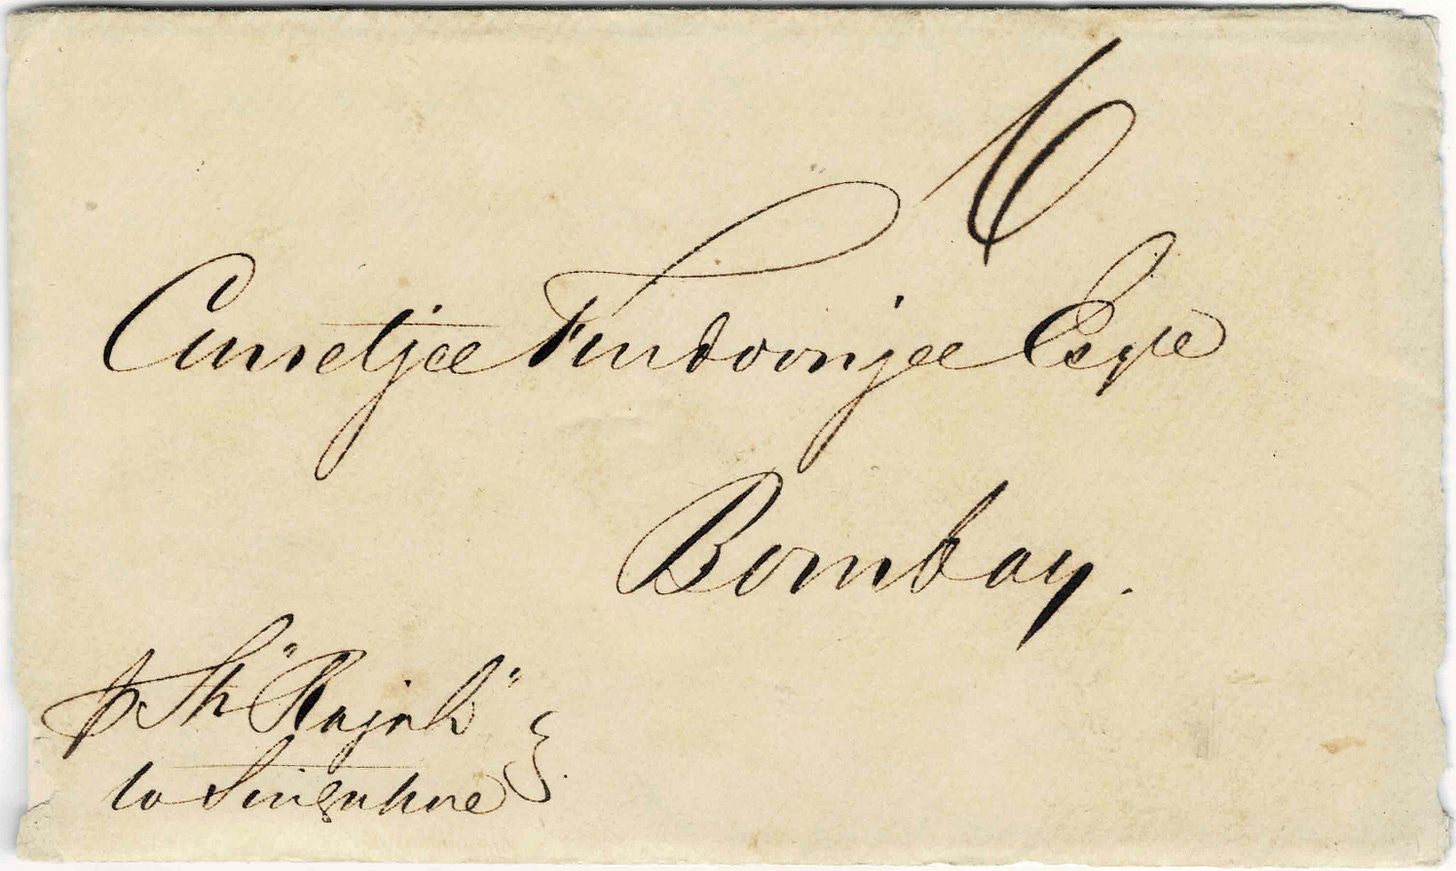 6
Cursetjee Furdoonjee Esqre
Bombay.
p Str "Rajah"
to Singapore